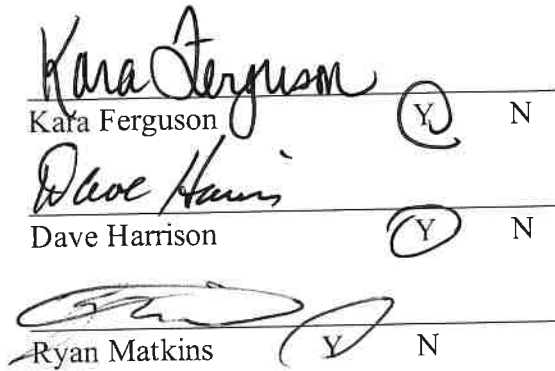 Kara Ferguson
Kara Ferguson Y N
Dave Harris
Dave Harrison Y N
Ryan Matkins Y N